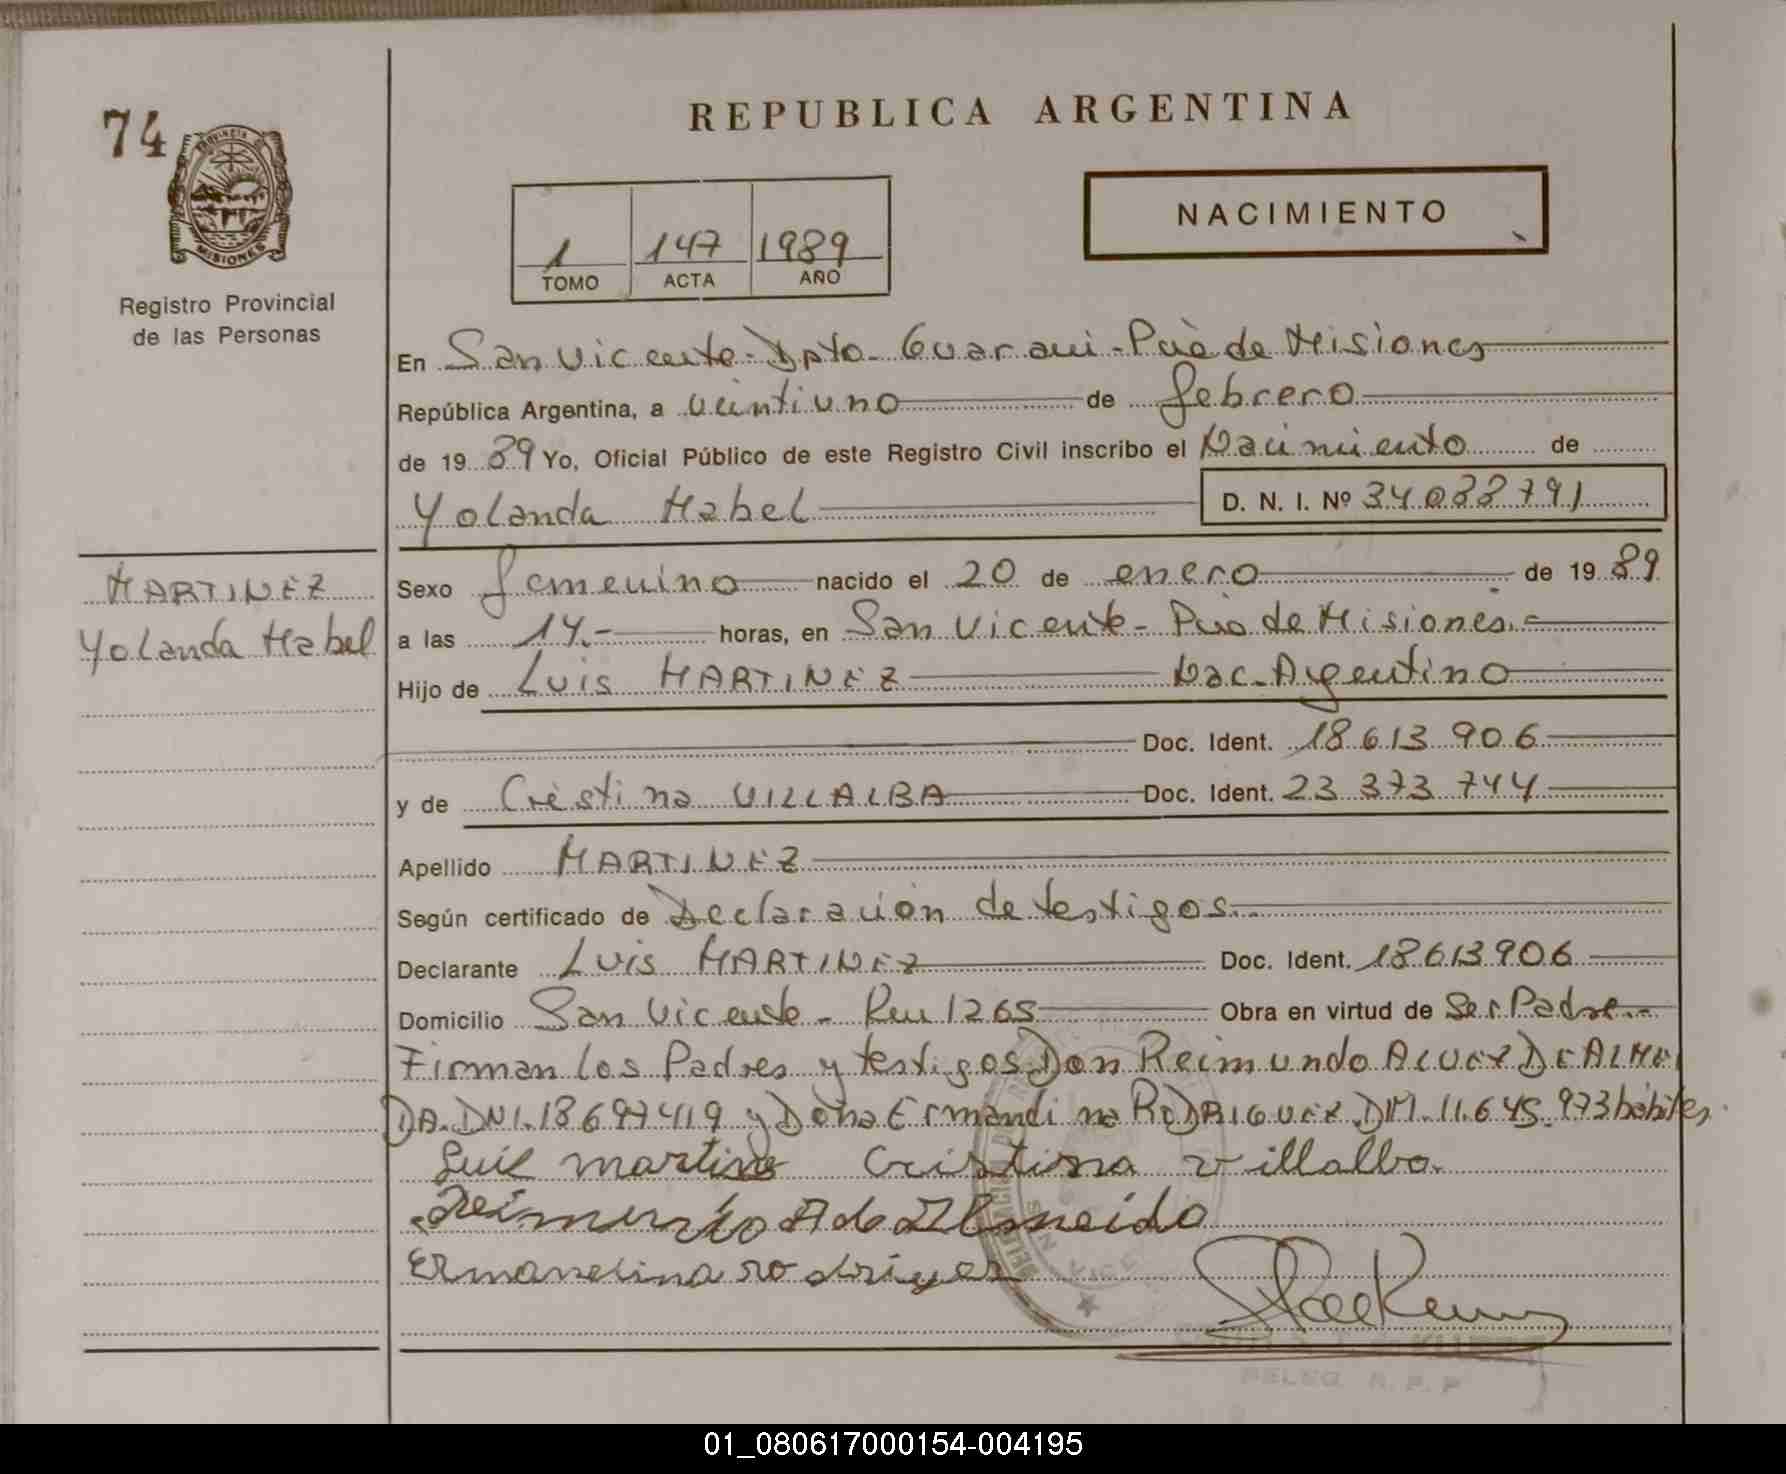 REPUBLICA ARGENTINA
74
PROVINCIA DE
MISIONES
Registro Provincial
de las Personas
1 147 1989
TOMO ACTA AÑO
NACIMIENTO
En San Vicente - Dpto - Guarani - Pcia de Misiones
República Argentina, a veintiuno de febrero
de 19 89 Yo, Oficial Público de este Registro Civil inscribo el Nacimiento de
Yolanda Mabel D. N. I. Nº 34.088.791
MARTINEZ
Yolanda Mabel
Sexo femenino nacido el 20 de enero de 19 89
a las 14.- horas, en San Vicente - Pcia de Misiones.-
Hijo de Luis MARTINEZ Nac. Argentino
Doc. Ident. 18.613.906
y de Cristina VILLALBA Doc. Ident. 23.373.744
Apellido MARTINEZ
Según certificado de Declaración de testigos.-
Declarante Luis MARTINEZ Doc. Ident. 18.613.906
Domicilio San Vicente - Km 1265 Obra en virtud de Ser Padre.-
Firman los Padres y testigos Don Reimundo ALVEZ DE ALMEI
DA. DNI. 18.697.419 y Doña Ermandina RODRIGUEZ. DNI. 11.645.973 hábiles.
Luis martines Cristina villalba.
Reimundo A de Almeida
Ermandina rodriguez
DELEG. R. P. P
01_080617000154-004195